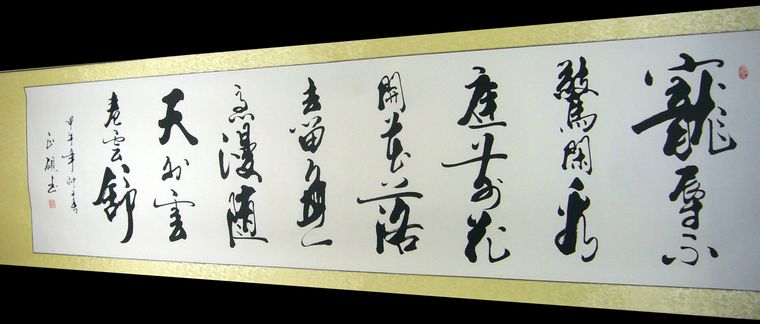 寵辱不
驚閑看
庭前花
開花落
去留無
意漫随
天外雲
卷雲舒
甲午年仲春